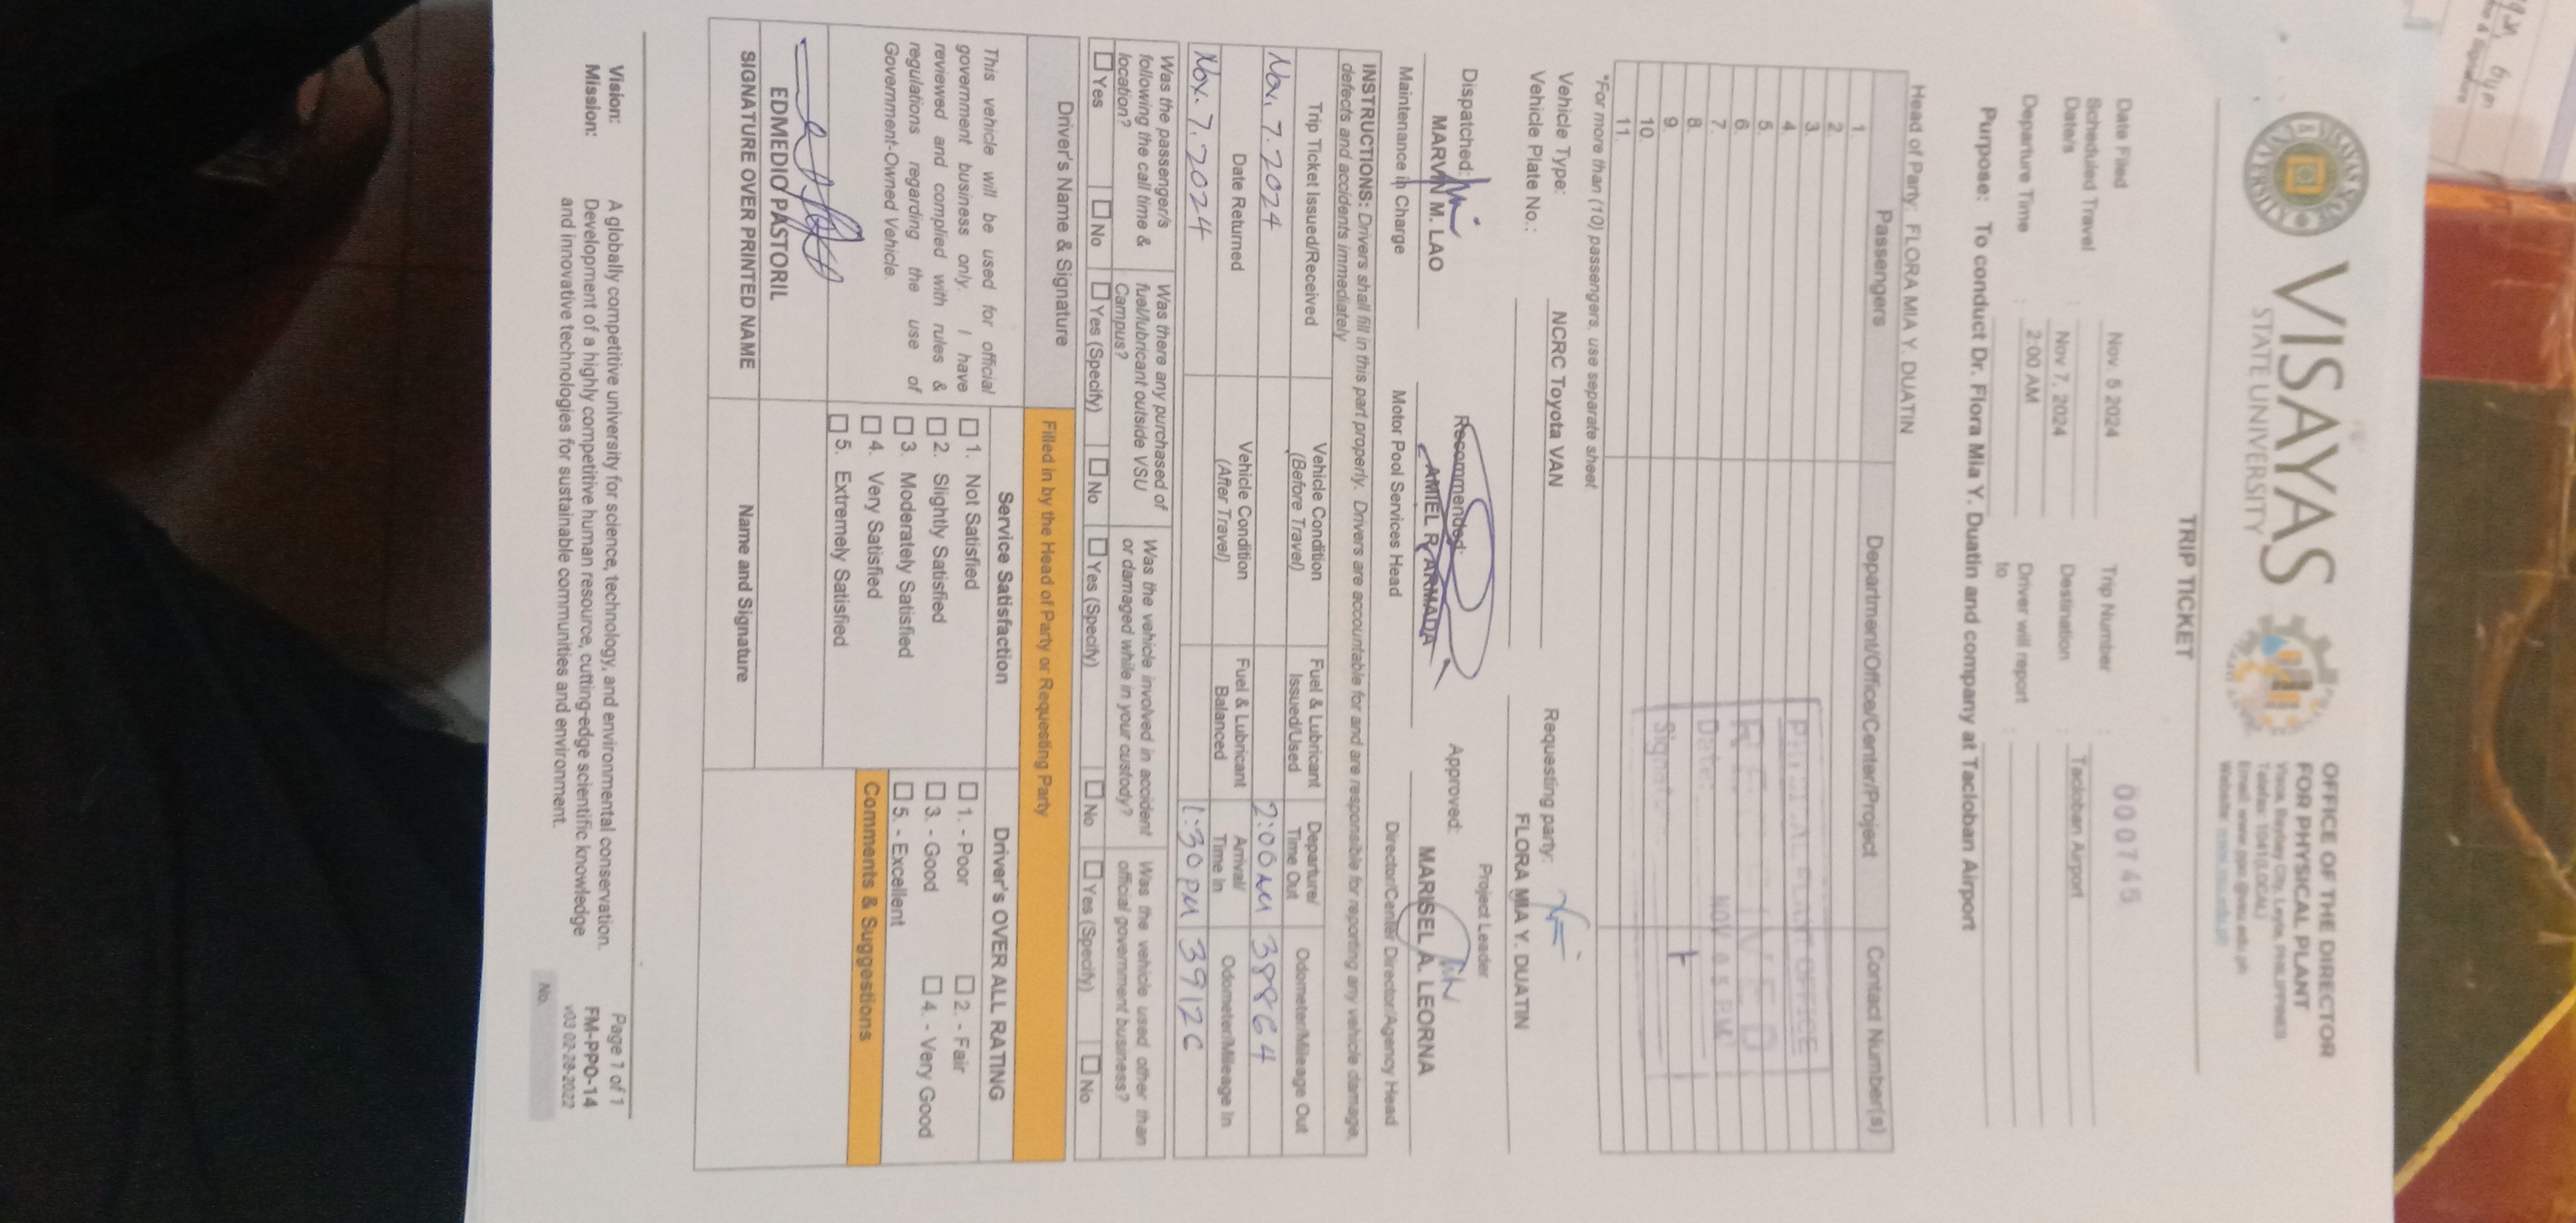 VISAYAS
STATE UNIVERSITY
OFFICE OF THE DIRECTOR
FOR PHYSICAL PLANT
Visca, Baybay City, Leyte, PHILIPPINES
Email: www.ppo@vsu.edu.ph
Website: www.vsu.edu.ph
TRIP TICKET
000745
Date Filed : Nov. 5 2024 Trip Number :
Scheduled Travel Date/s : Nov 7, 2024 Destination : Tacloban Airport
Departure Time : 2:00 AM Driver will report to :
Purpose: To conduct Dr. Flora Mia Y. Duatin and company at Tacloban Airport
Head of Party: FLORA MIA Y. DUATIN
Passengers Department/Office/Center/Project Contact Number(s)
1.
2.
3.
4.
5.
6.
7.
8.
9.
10.
11.
*For more than (10) passengers, use separate sheet.
Vehicle Type: NCRC Toyota VAN Requesting party:
Vehicle Plate No.: FLORA MIA Y. DUATIN
Project Leader
Dispatched: Recommended: Approved:
MARVIN M. LAO AMIEL R. ARMADA MARISEL A. LEORNA
Maintenance in Charge Motor Pool Services Head Director/Center Director/Agency Head
INSTRUCTIONS: Drivers shall fill in this part properly. Drivers are accountable for and are responsible for reporting any vehicle damage,
defects and accidents immediately
Trip Ticket Issued/Received Vehicle Condition (Before Travel) Fuel & Lubricant Issued/Used Departure/ Time Out Odometer/Mileage Out
Nov. 7. 2024 2:00 AM 38864
Date Returned Vehicle Condition (After Travel) Fuel & Lubricant Balanced Arrival/ Time In Odometer/Mileage In
Nov. 7. 2024 1:30 PM 39126
Was the passenger/s following the call time & location? Was there any purchased of fuel/lubricant outside VSU Campus? Was the vehicle involved in accident or damaged while in your custody? Was the vehicle used other than official government business?
Yes No Yes (Specify) No Yes (Specify) No Yes (Specify) No
Driver's Name & Signature Filled in by the Head of Party or Requesting Party
Service Satisfaction Driver's OVER ALL RATING
This vehicle will be used for official
government business only. I have
reviewed and complied with rules &
regulations regarding the use of
Government-Owned Vehicle.
1. Not Satisfied
2. Slightly Satisfied
3. Moderately Satisfied
4. Very Satisfied
5. Extremely Satisfied
1. - Poor 2. - Fair
3. - Good 4. - Very Good
5. - Excellent
Comments & Suggestions
EDMEDIO PASTORIL
SIGNATURE OVER PRINTED NAME Name and Signature
Vision: A globally competitive university for science, technology, and environmental conservation.
Mission: Development of a highly competitive human resource, cutting-edge scientific knowledge
and innovative technologies for sustainable communities and environment.
Page 1 of 1
FM-PPO-14
v03 02-28-2022
No.